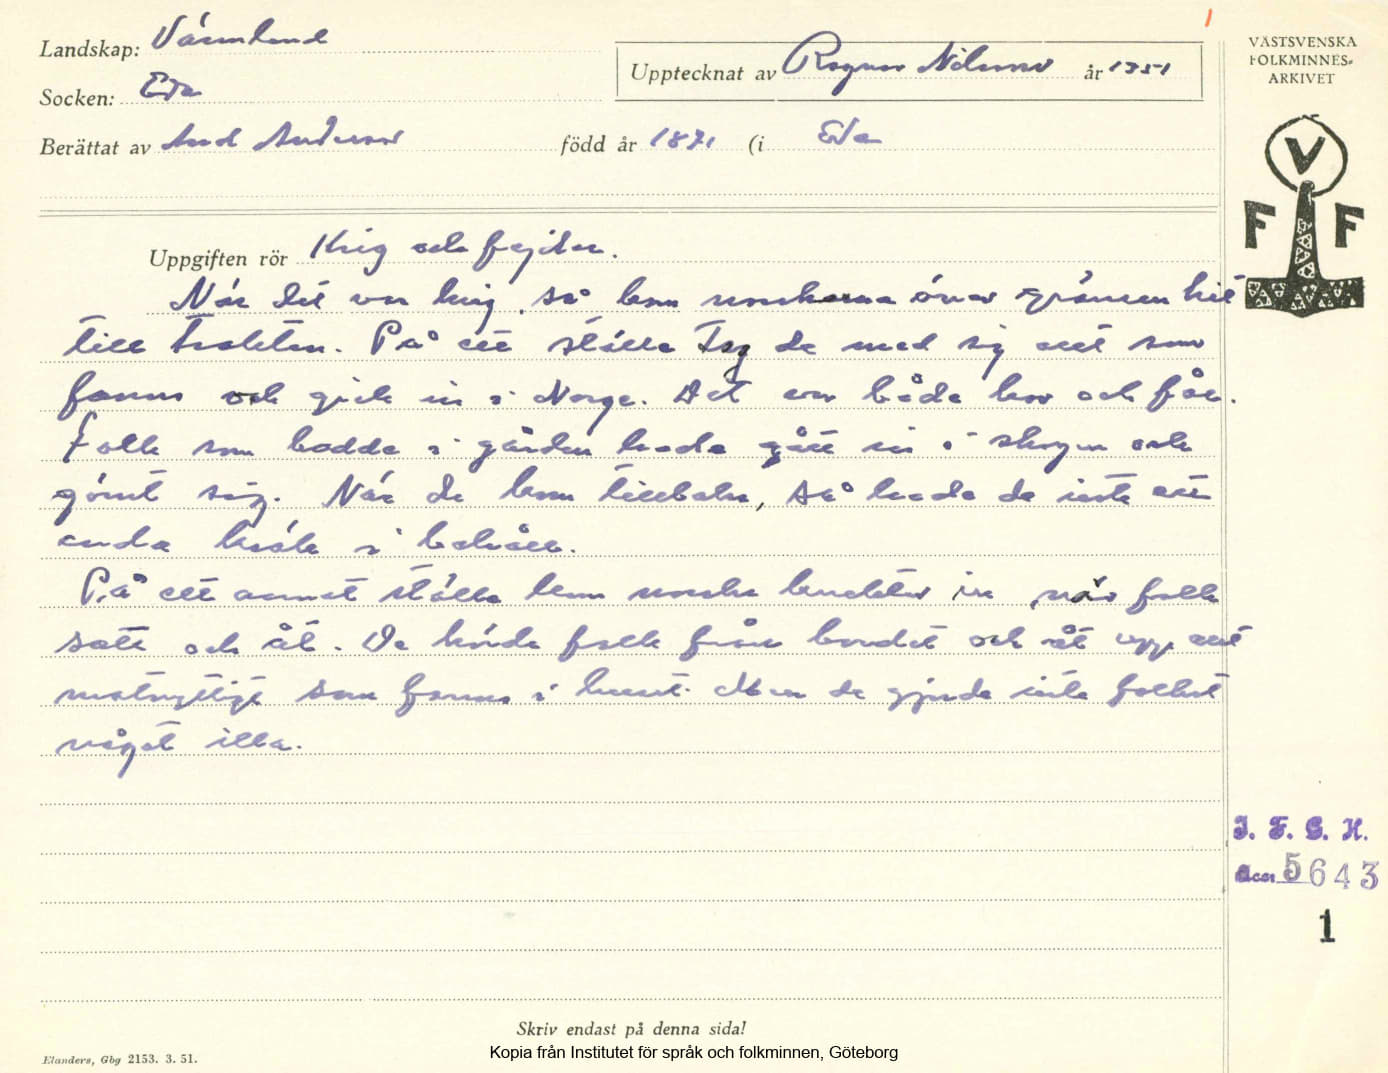 Landskap: Värmland
Socken: Eda
Upptecknat av Ragnar Nilsson år 1951
Berättat av Axel Andersson född år 1871 (i Eda
VÄSTSVENSKA
FOLKMINNES-
ARKIVET
V
F F
Uppgiften rör Krig och fejder.
När det var krig, så kom norskarna över gränsen hit
till trakten. På ett ställe tog de med sig allt som
fanns och gick in i Norge. Det var både kor och får.
Folk som bodde i gården hade gått in i skogen och
gömt sig. När de kom tillbaka, så hade de inte ett
enda kräk i behåll.
På ett annat ställe kom norska knektar in när folk
satt och åt. De körde folk från bordet och åt upp allt
matnyttigt som fanns i huset. Men de gjorde inte folket
något illa.
I. F. G. H.
Acc. 5643
1
Skriv endast på denna sida!
Elanders, Gbg 2153. 3. 51.
Kopia från Institutet för språk och folkminnen, Göteborg